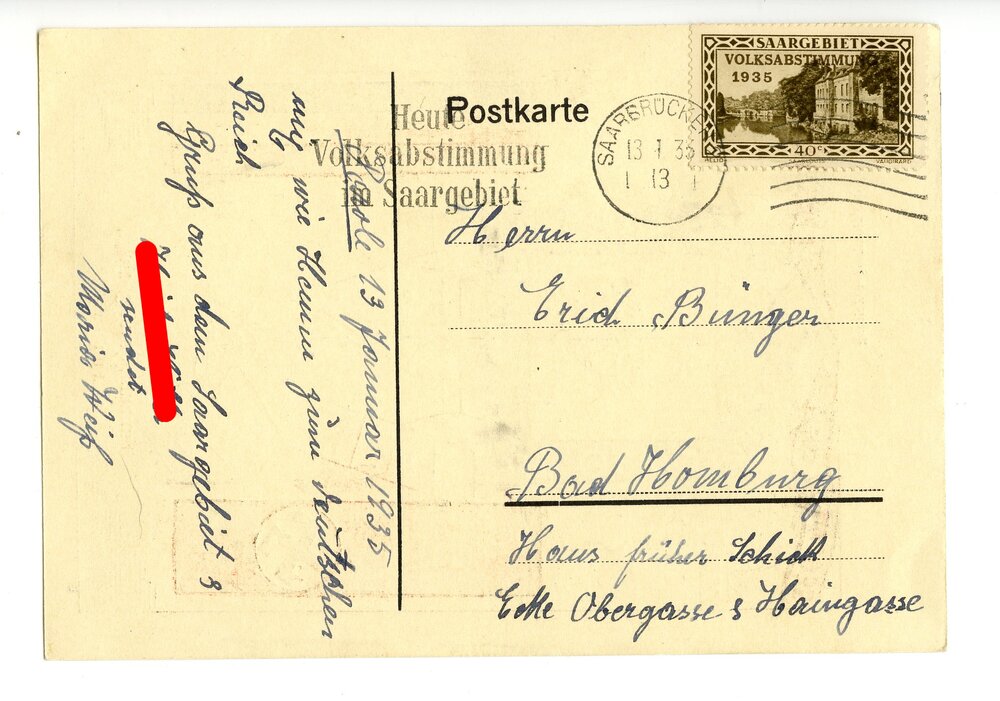 SAARGEBIET
VOLKSABSTIMMUNG
1935
40c
HELIO VAUGIRARD
SAARBRÜCKEN
13 1 35
1 13 1
Postkarte
Heute
Volksabstimmung
im Saargebiet
13 Januar 1935
wie zum deutschen
Reich
Gruß aus dem Saargebiet &
sendet
Herrn
Erich Bünger
Bad Homburg
Haus früher Schick
Ecke Obergasse & Haingasse